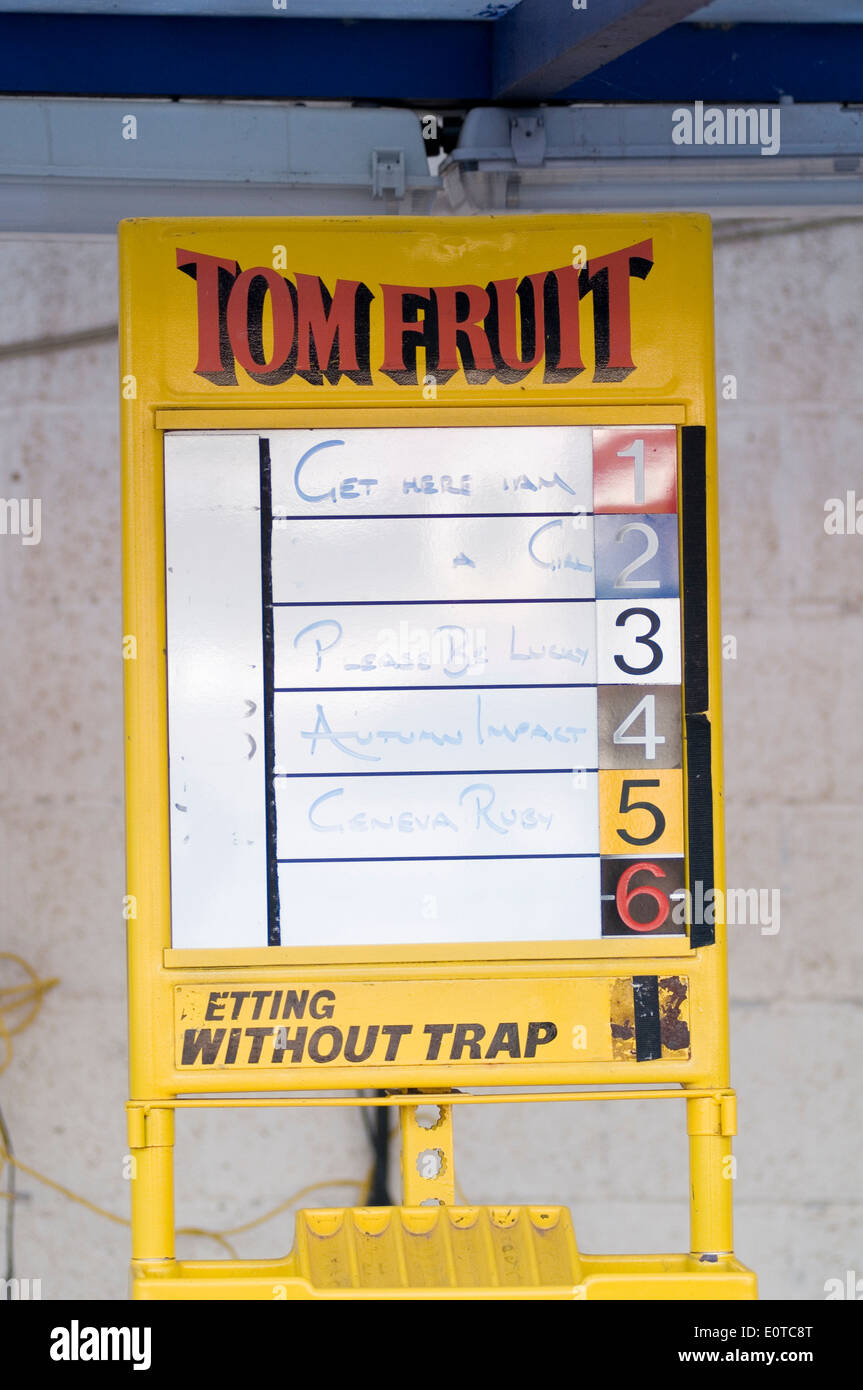 TOM FRUIT
GET HERE IAM 1
A GIRL 2
PLEASE BE LUCKY 3
AUTUMN IMPACT 4
GENEVA RUBY 5
6
ETTING
WITHOUT TRAP
a alamy stock photo
E0TC8T
www.alamy.com